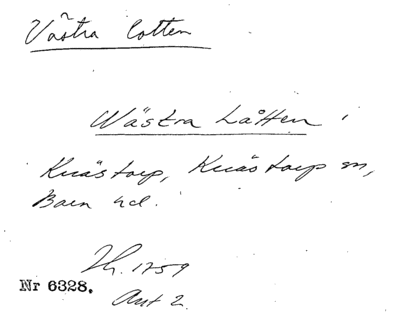 Västra Lotten
Wästra Låtten i
Knästorp, Knästorp sn,
Bara hd.
Th. 1759
Nr 6328.
Ant 2